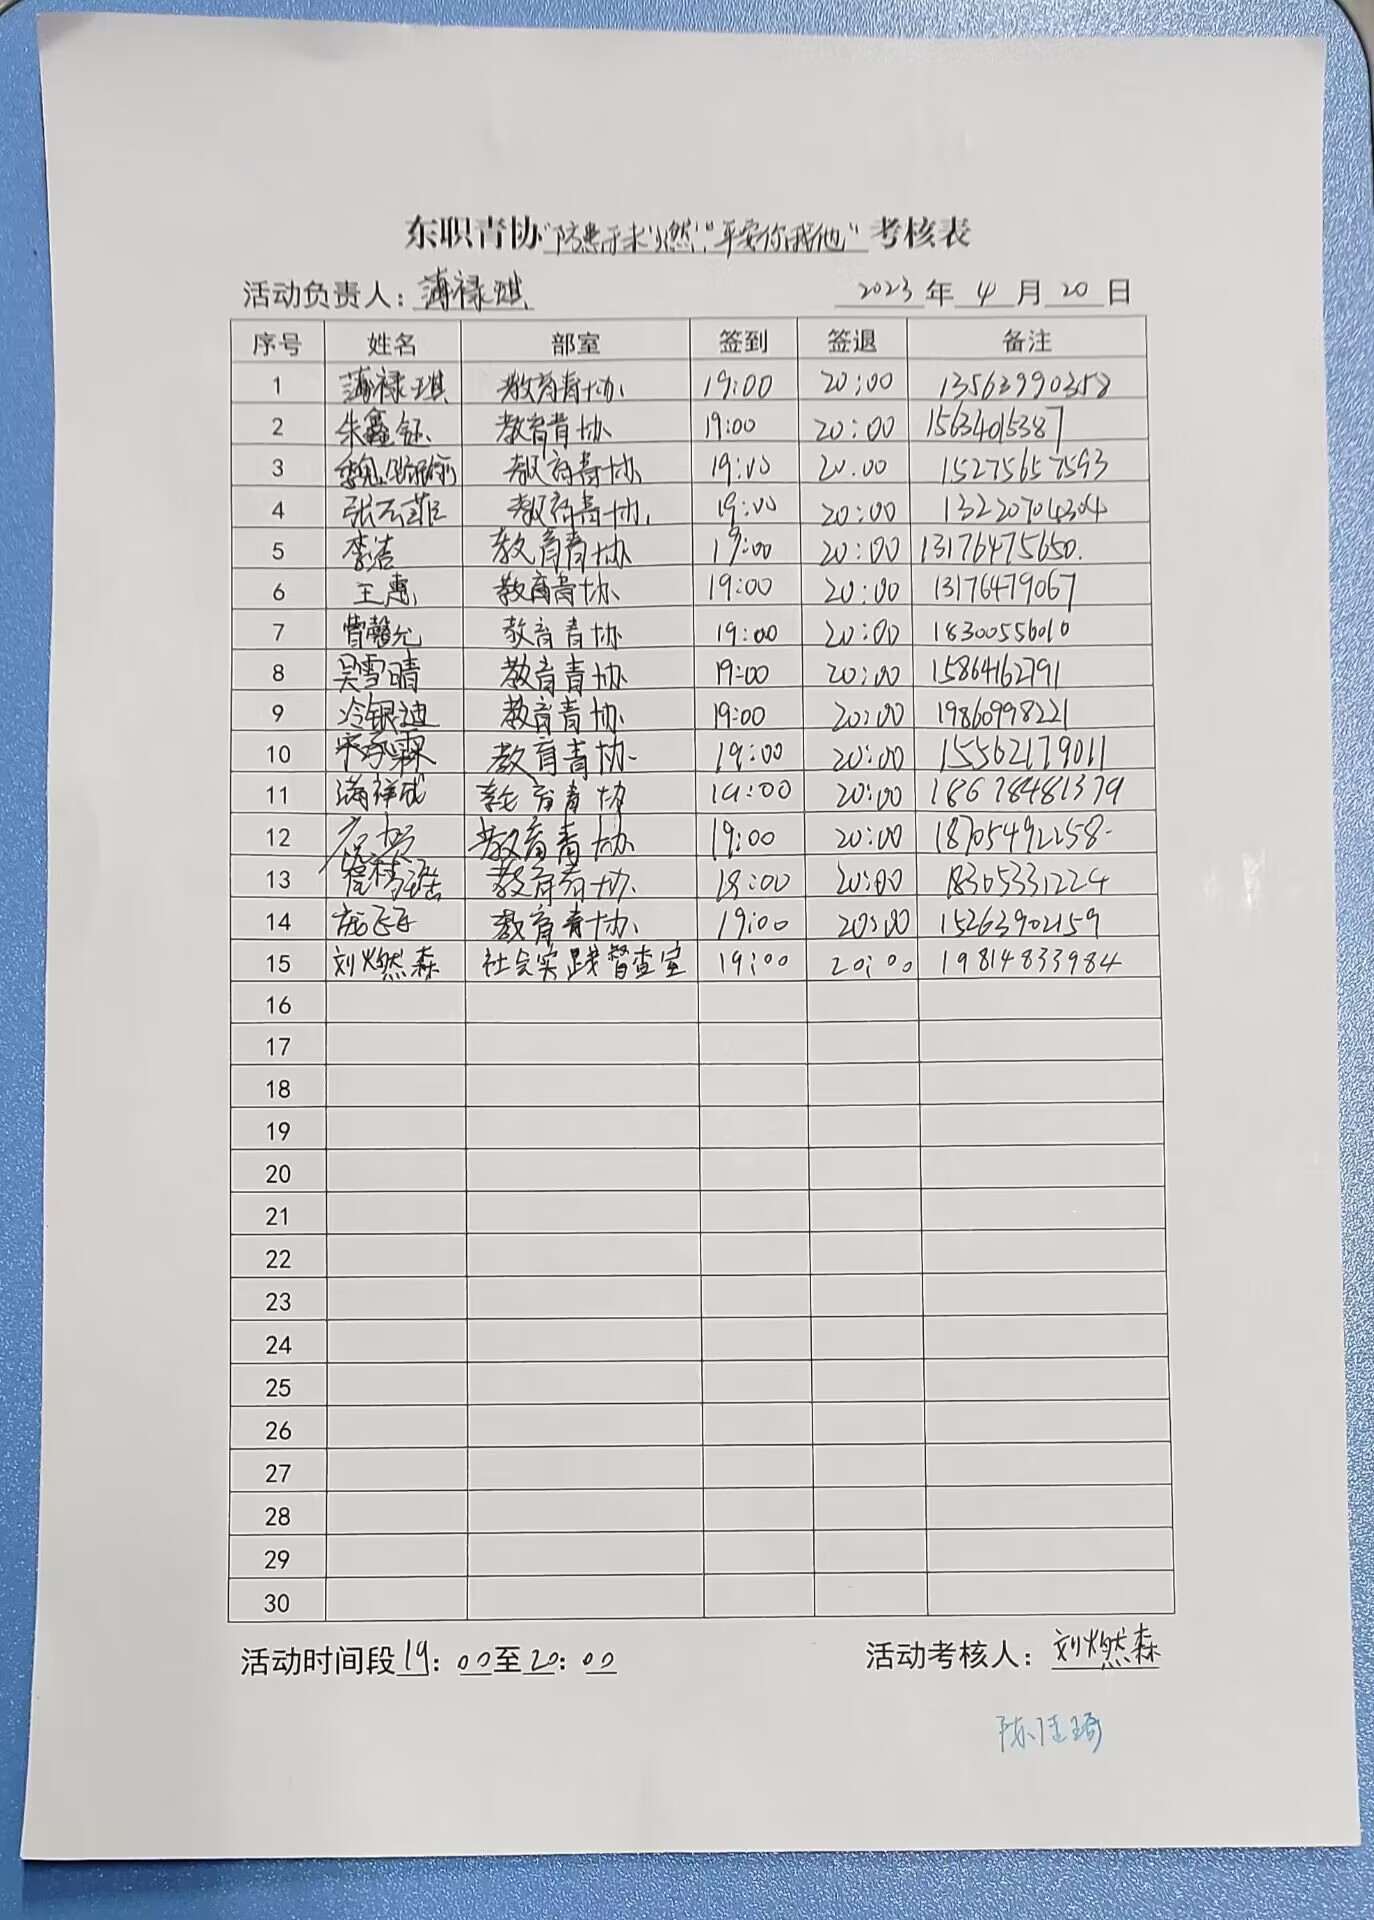 东职青协“防患于未‘燃’，“平安你我他” 考核表
活动负责人：薄禄琪 2023 年 4 月 20 日
序号 姓名 部室 签到 签退 备注
1 薄禄琪 教育青协 19:00 20:00 13563990358
2 朱鑫钰 教育青协 19:00 20:00 15634015387
3 教育青协 19:00 20:00 15275657593
4 教育青协 19:00 20:00 13220704304
5 李洁 教育青协 19:00 20:00 13176475650.
6 王惠 教育青协 19:00 20:00 13176479067
7 曹馨允 教育青协 19:00 20:00 18300556010
8 吴雪晴 教育青协 19:00 20:00 15864162791
9 冷银迪 教育青协 19:00 20:00 19860998221
10 宋承霖 教育青协 19:00 20:00 15562179011
11 满祥成 教育青协 19:00 20:00 18678481379
12 教育青协 19:00 20:00 18705492258
13 教育青协 19:00 20:00 18305331224
14 庞飞飞 教育青协 19:00 20:00 15263902159
15 刘燃森 社会实践督查室 19:00 20:00 19814833984
16
17
18
19
20
21
22
23
24
25
26
27
28
29
30
活动时间段 19：00至20：00 活动考核人：刘燃森
陈佳琦